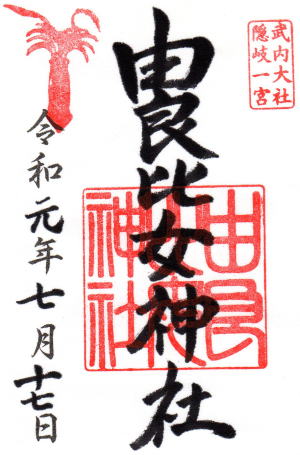 式内大社
隠岐一宮
由良比女神社
由良
神社
令和元年七月十七日